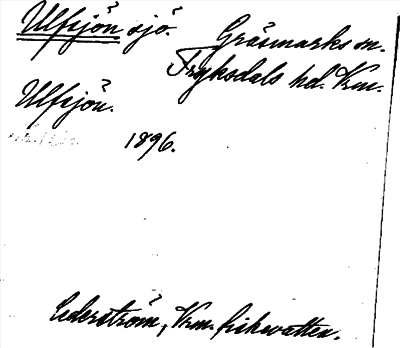 Ulfsjön sjö. Gräsmarks sn.
Fryksdals hd. Vrm.
Ulfsjön.
1896.
Cederström, Vrm. fiskevatten.